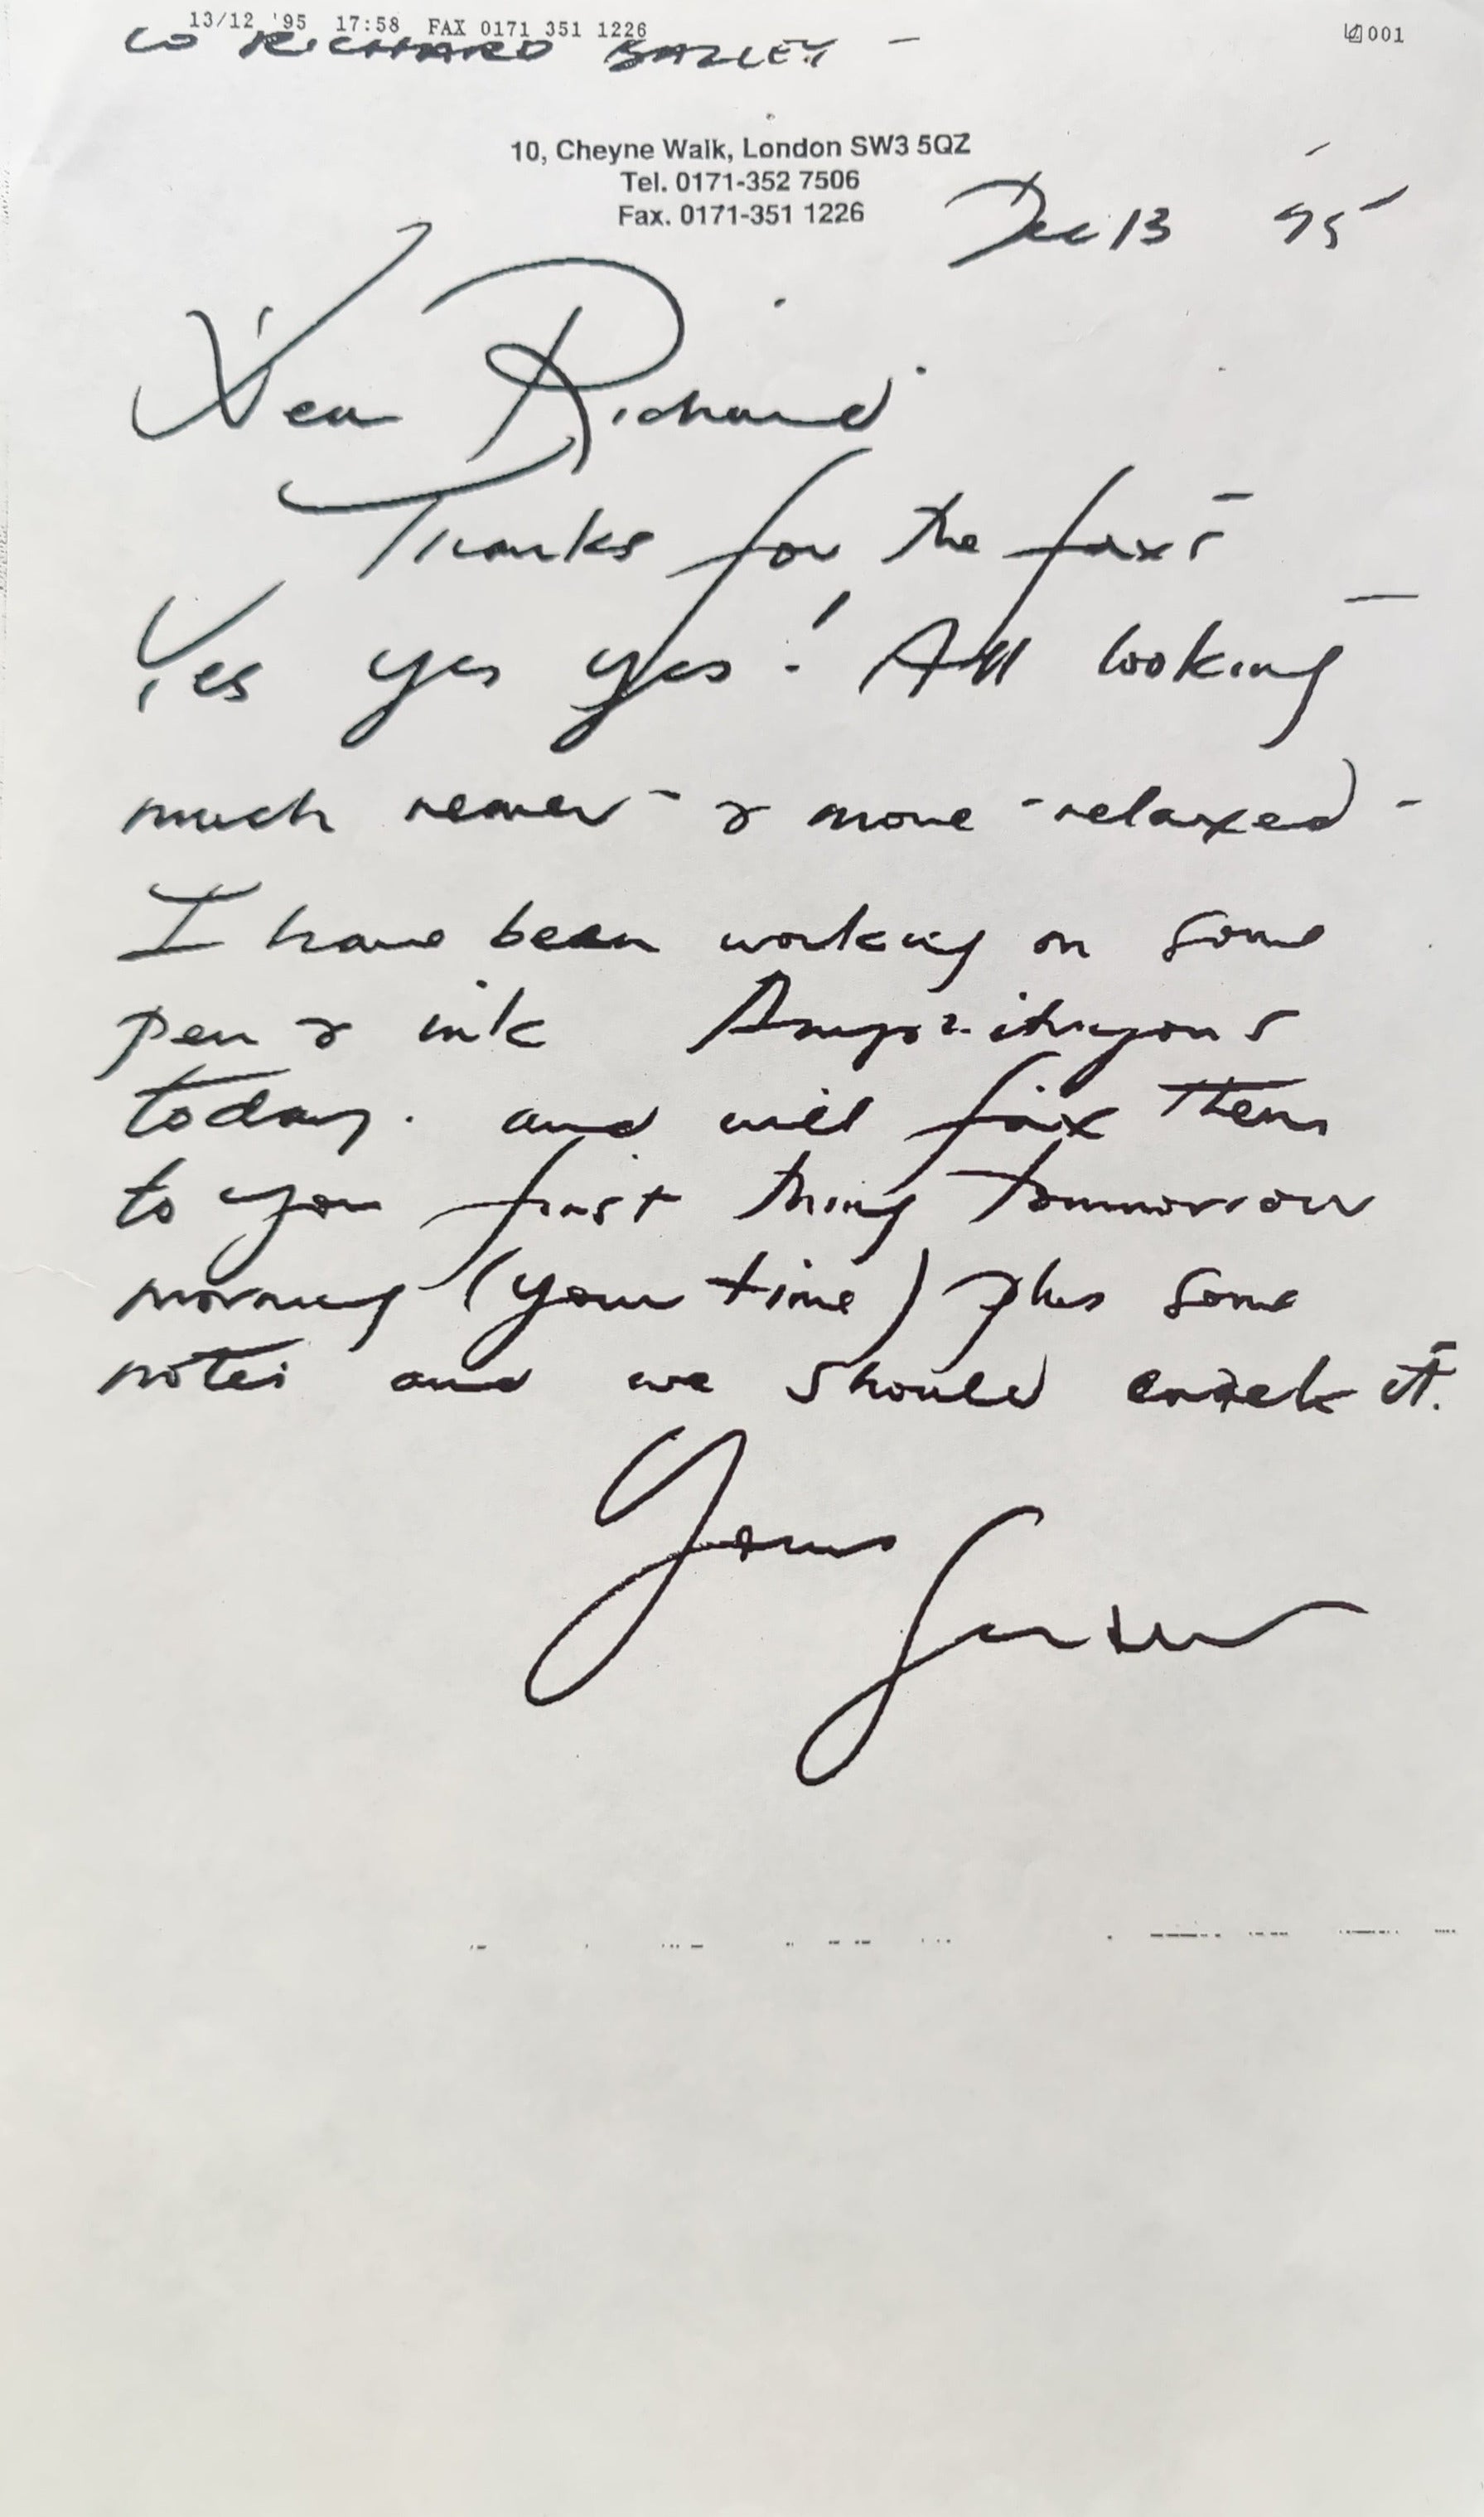 13/12 '95 17:58 FAX 0171 351 1226 001
to RICHARD BAZLEY -
10, Cheyne Walk, London SW3 5QZ
Tel. 0171-352 7506
Fax. 0171-351 1226
Dec 13 95
Dear Richard
Thanks for the faxs -
Yes yes yes! All looking -
much nearer - & more - relaxed -
I have been working on some
pen & ink
today. and will fax them
to you first thing tommorrow
morning (your time) plus some
notes and we should crack it.
Yours